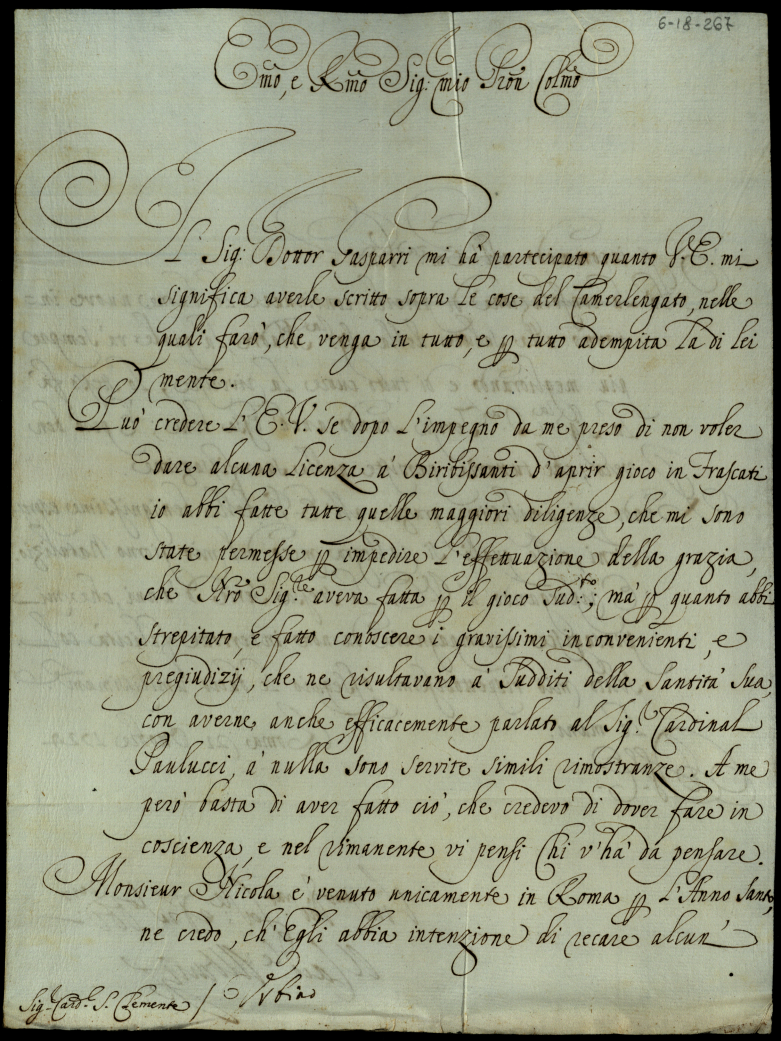 6-18-267
Emo, e Rmo Sig: mio Pron Colmo
Il Sig: Dottor Gasparri mi hà partecipato quanto V.E. mi
significa averle scritto sopra le cose del Camerlengato, nelle
quali farò, che venga in tutto, e p tutto adempita la di lei
mente.
Può credere l'E.V. se dopo l'impegno da me preso di non voler
dare alcuna licenza à Biribissanti d'aprir gioco in Frascati
io abbi fatte tutte quelle maggiori diligenze, che mi sono
state permesse p impedire l'effettuazione della grazia,
che Nro Sig.re aveva fatta p il gioco sud:to; mà p quanto abbi
strepitato, e fatto conoscere i gravissimi inconvenienti, e
pregiudizij, che ne risultavano à Sudditi della Santità Sua,
con averne anche efficacemente parlato al Sig.r Cardinal
Paulucci, à nulla sono servite simili rimostranze. A me
però basta di aver fatto ciò, che credevo di dover fare in
coscienza, e nel rimanente vi pensi Chi v'hà da pensare.
Monsieur Nicola è venuto unicamente in Roma p l'Anno Santo,
ne credo, ch'Egli abbia intenzione di recare alcun'
Sig.r Card.l S. Clemente /